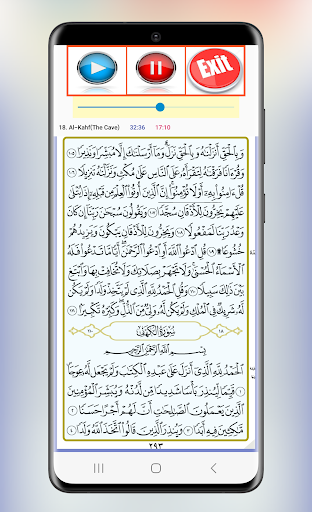 Exit
18. Al-Kahf(The Cave) 32:36 17:10
وَبِٱلْحَقِّ أَنزَلْنَٰهُ وَبِٱلْحَقِّ نَزَلَ وَمَآ أَرْسَلْنَٰكَ إِلَّا مُبَشِّرًا وَنَذِيرًا ١٠٥
وَقُرْءَانًا فَرَقْنَٰهُ لِتَقْرَأَهُۥ عَلَى ٱلنَّاسِ عَلَىٰ مُكْثٍ وَنَزَّلْنَٰهُ تَنزِيلًا ١٠٦
قُلْ ءَامِنُوا۟ بِهِۦٓ أَوْ لَا تُؤْمِنُوٓا۟ إِنَّ ٱلَّذِينَ أُوتُوا۟ ٱلْعِلْمَ مِن قَبْلِهِۦٓ إِذَا يُتْلَىٰ
عَلَيْهِمْ يَخِرُّونَ لِلْأَذْقَانِ سُجَّدًا ١٠٧ وَيَقُولُونَ سُبْحَٰنَ رَبِّنَآ إِن كَانَ
وَعْدُ رَبِّنَا لَمَفْعُولًا ١٠٨ وَيَخِرُّونَ لِلْأَذْقَانِ يَبْكُونَ وَيَزِيدُهُمْ
خُشُوعًا ۩ ١٠٩ قُلِ ٱدْعُوا۟ ٱللَّهَ أَوِ ٱدْعُوا۟ ٱلرَّحْمَٰنَ أَيًّا مَّا تَدْعُوا۟ فَلَهُ
ٱلْأَسْمَآءُ ٱلْحُسْنَىٰ وَلَا تَجْهَرْ بِصَلَاتِكَ وَلَا تُخَافِتْ بِهَا وَٱبْتَغِ بَيْنَ
ذَٰلِكَ سَبِيلًا ١١٠ وَقُلِ ٱلْحَمْدُ لِلَّهِ ٱلَّذِى لَمْ يَتَّخِذْ وَلَدًا وَلَمْ يَكُن
لَّهُۥ شَرِيكٌ فِى ٱلْمُلْكِ وَلَمْ يَكُن لَّهُۥ وَلِىٌّ مِّنَ ٱلذُّلِّ وَكَبِّرْهُ تَكْبِيرًۢا ١١١
سُورَةُ الكَهْفِ
بِسْمِ ٱللَّهِ ٱلرَّحْمَٰنِ ٱلرَّحِيمِ
ٱلْحَمْدُ لِلَّهِ ٱلَّذِىٓ أَنزَلَ عَلَىٰ عَبْدِهِ ٱلْكِتَٰبَ وَلَمْ يَجْعَل لَّهُۥ عِوَجَا
١ قَيِّمًا لِّيُنذِرَ بَأْسًا شَدِيدًا مِّن لَّدُنْهُ وَيُبَشِّرَ ٱلْمُؤْمِنِينَ
ٱلَّذِينَ يَعْمَلُونَ ٱلصَّٰلِحَٰتِ أَنَّ لَهُمْ أَجْرًا حَسَنًا ٢
مَّٰكِثِينَ فِيهِ أَبَدًا ٣ وَيُنذِرَ ٱلَّذِينَ قَالُوا۟ ٱتَّخَذَ ٱللَّهُ وَلَدًا ٤
٢٩٣